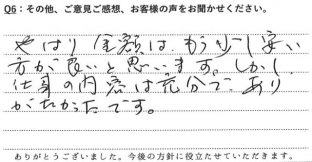 Q6：その他、ご意見ご感想、お客様の声をお聞かせください。
やはり金額は、もう少し安い
方が良いと思います。しかし
仕事の内容は充分で、あり
がたかったです。
ありがとうございました。今後の方針に役立たせていただきます。